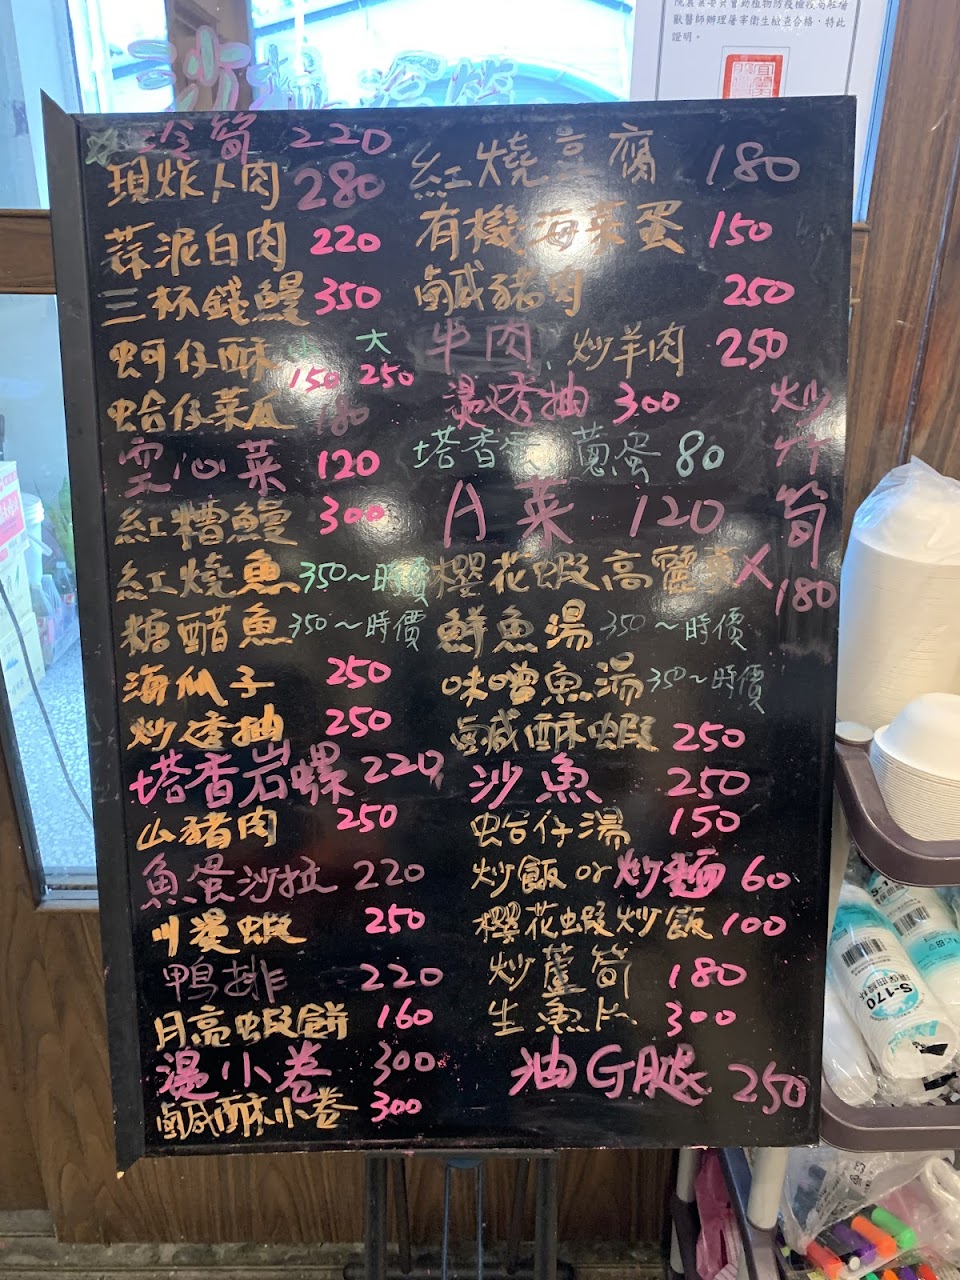 院農業委員會動植物防疫檢疫局駐場
獸醫師辦理屠宰衛生檢查合格，特此
證明。
冷筍 220
現炸卜肉 280
蒜泥白肉 220
三杯錢鰻 350
蚵仔酥 小 大
150 250
蛤仔菜瓜 180
空心菜 120
紅糟鰻 300
紅燒魚 350~時價
糖醋魚 350~時價
海瓜子 250
炒透抽 250
塔香岩螺 220
山豬肉 250
魚蛋沙拉 220
川燙蝦 250
鴨排 220
月亮蝦餅 160
湯小卷 300
鹹酥小卷 300
紅燒豆腐 180
有機海菜蛋 150
鹹豬肉 250
牛肉 炒羊肉 250
燙透抽 300
塔香蛋 蔥蛋 80
A菜 120
櫻花蝦高麗菜 X
鮮魚湯 350~時價
味噌魚湯 350~時價
鹹酥蝦 250
沙魚 250
蛤仔湯 150
炒飯or炒麵 60
櫻花蝦炒飯 100
炒蘆筍 180
生魚片 300
油G腿 250
炒竹筍 180
S-170